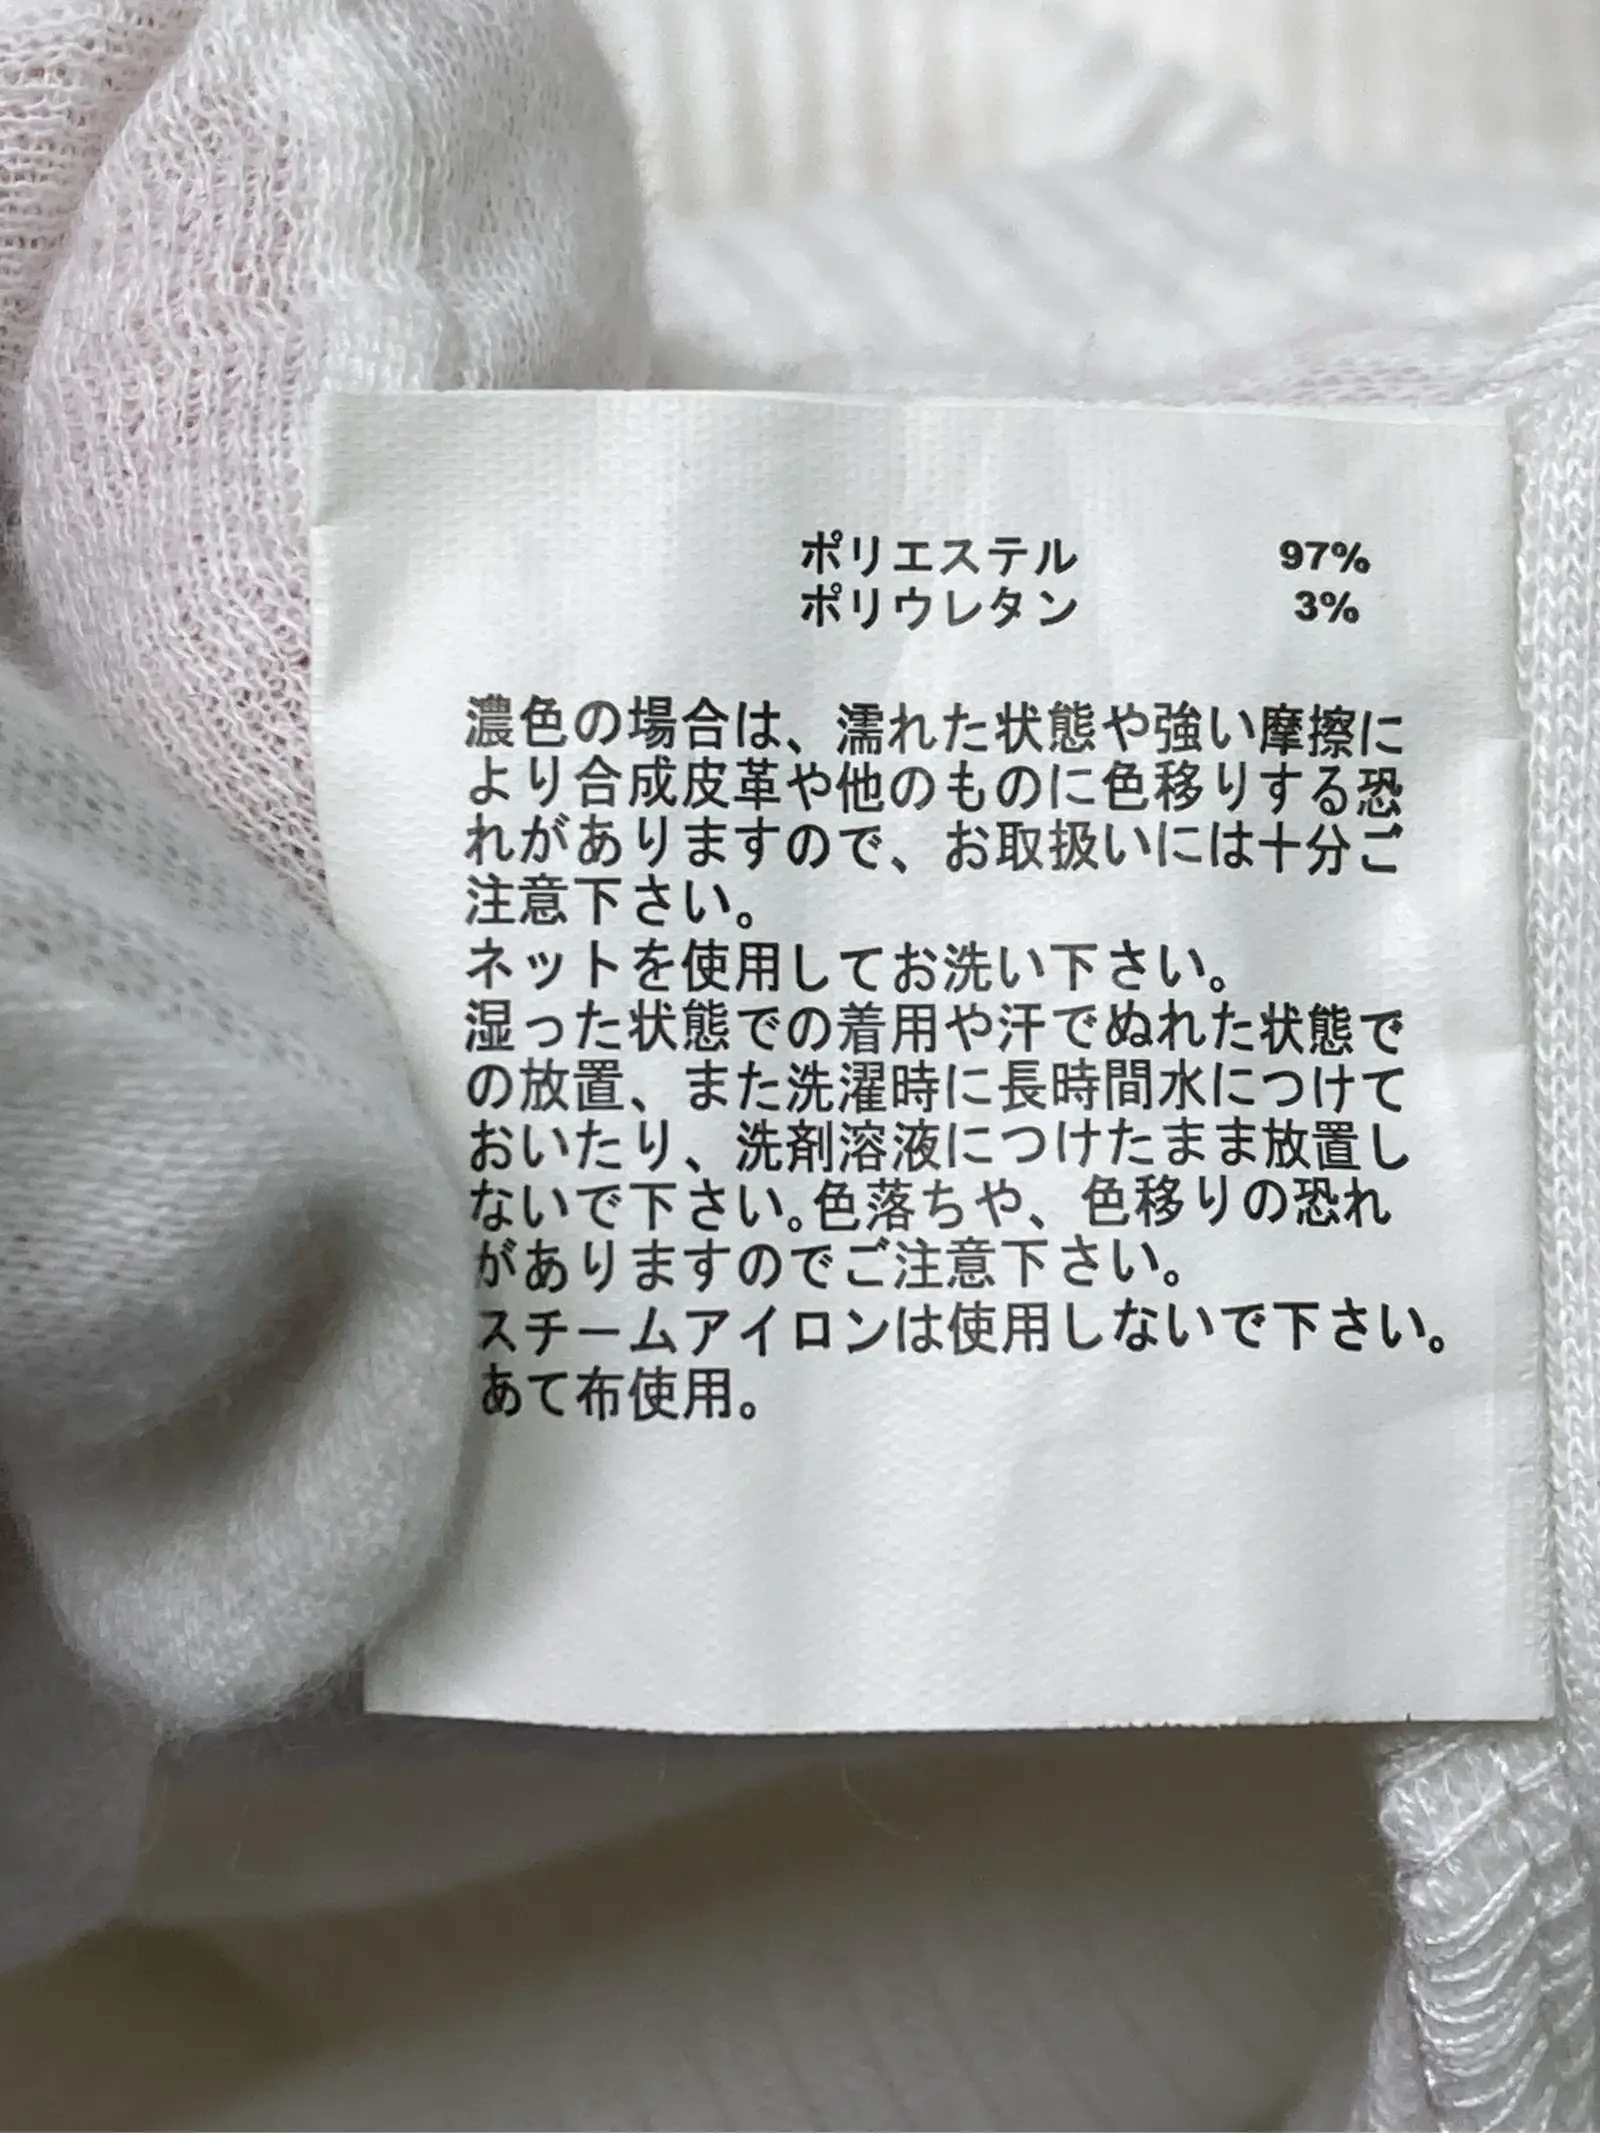 ポリエステル 97%
ポリウレタン 3%
濃色の場合は、濡れた状態や強い摩擦に
より合成皮革や他のものに色移りする恐
れがありますので、お取扱いには十分ご
注意下さい。
ネットを使用してお洗い下さい。
湿った状態での着用や汗でぬれた状態で
の放置、また洗濯時に長時間水につけて
おいたり、洗剤溶液につけたまま放置し
ないで下さい。色落ちや、色移りの恐れ
がありますのでご注意下さい。
スチームアイロンは使用しないで下さい。
あて布使用。